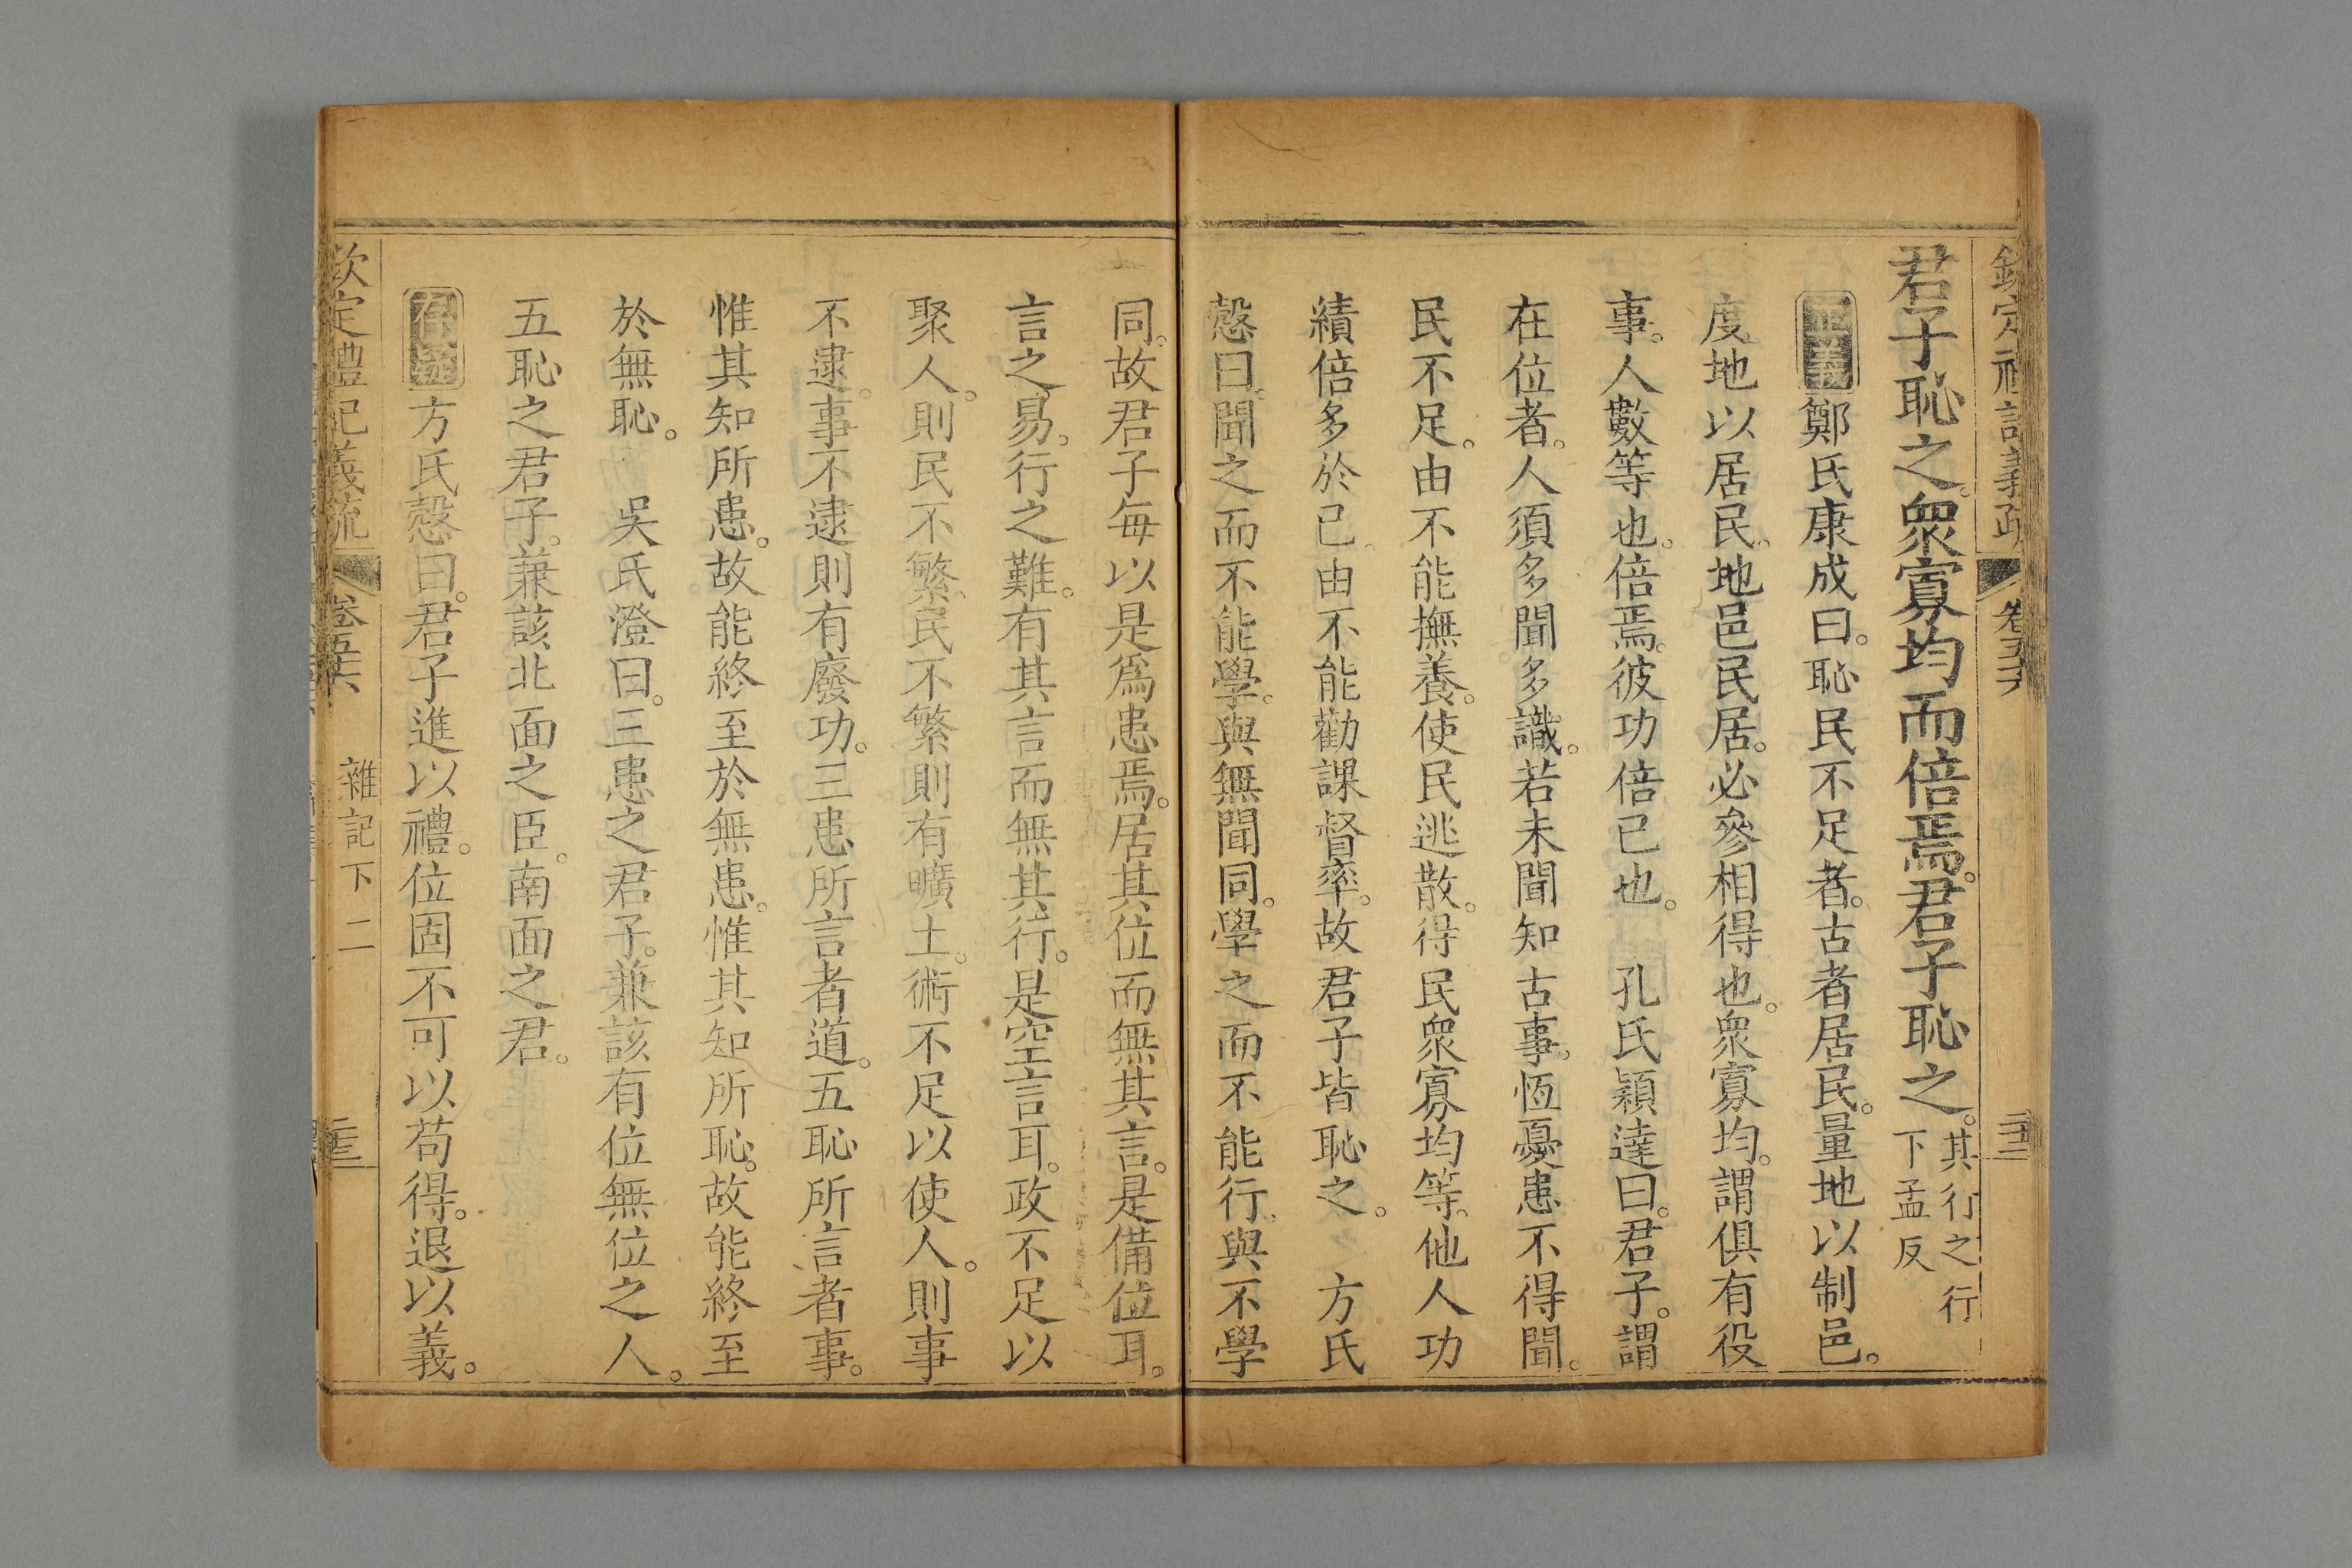 欽定禮記義疏 卷五十六 二十二
君子恥之。衆寡均而倍焉。君子恥之。其行之行
下孟反
正義鄭氏康成曰。恥民不足者。古者居民。量地以制邑。
度地以居民。地邑民居。必參相得也。衆寡均。謂俱有役
事。人數等也。倍焉。彼功倍已也。 孔氏穎達曰。君子。謂
在位者。人須多聞多識。若未聞知古事。恆憂患不得聞。
民不足。由不能撫養。使民逃散。得民衆寡均等。他人功
績倍多於已。由不能勸課督率。故君子皆恥之。 方氏
慤曰。聞之而不能學。與無聞同。學之而不能行。與不學
同。故君子每以是爲患焉。居其位而無其言。是備位耳。
言之易。行之難。有其言而無其行。是空言耳。政不足以
聚人。則民不繁。民不繁則有曠土。術不足以使人。則事
不逮。事不逮則有廢功。三患所言者道。五恥所言者事。
惟其知所患。故能終至於無患。惟其知所恥。故能終至
於無恥。 吳氏澄曰。三患之君子。兼該有位無位之人。
五恥之君子。兼該北面之臣。南面之君。
存疑方氏慤曰。君子進以禮。位固不可以苟得。退以義。
欽定禮記義疏 卷五十六 雜記下二 二十三